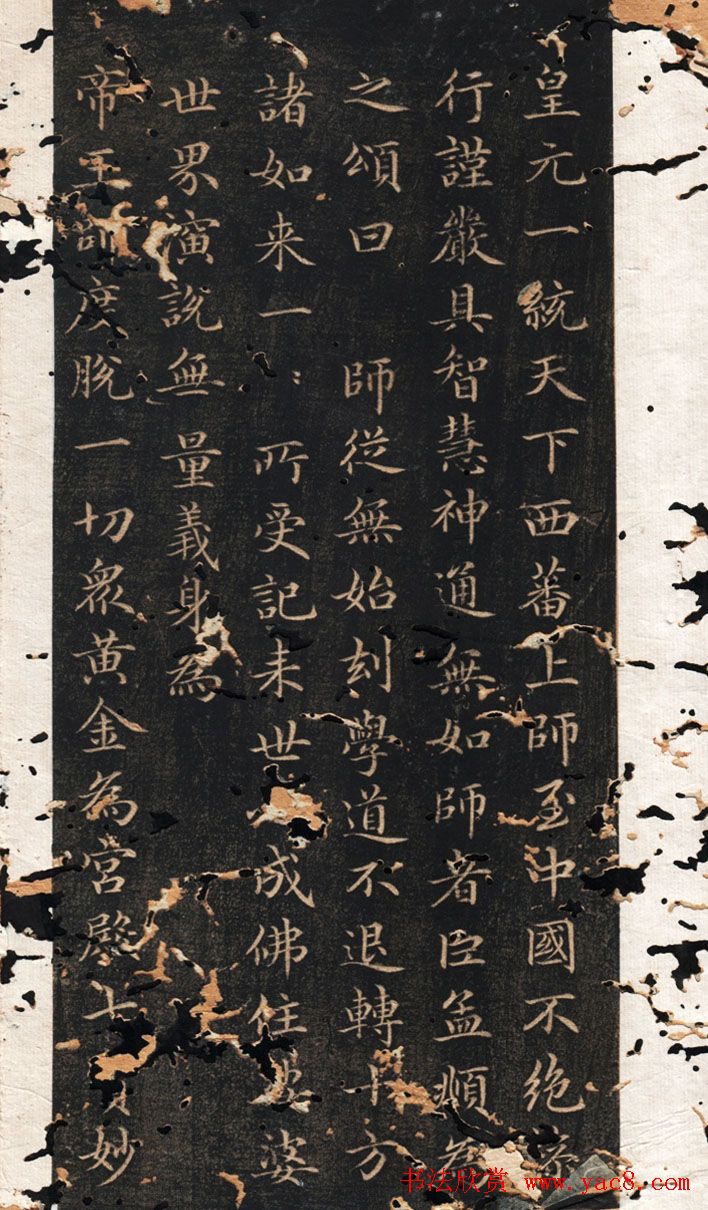 皇元一統天下西蕃上師至中國不絶
行謹嚴具智慧神通無如師者臣孟頫為
之頌曰 師從無始刧學道不退轉十方
諸如来一:所受記来世 成佛住娑婆
世界演説無量義身為
帝王師度脫一切衆黄金為宮殿七寳妙
书法欣赏 www.yac8.com